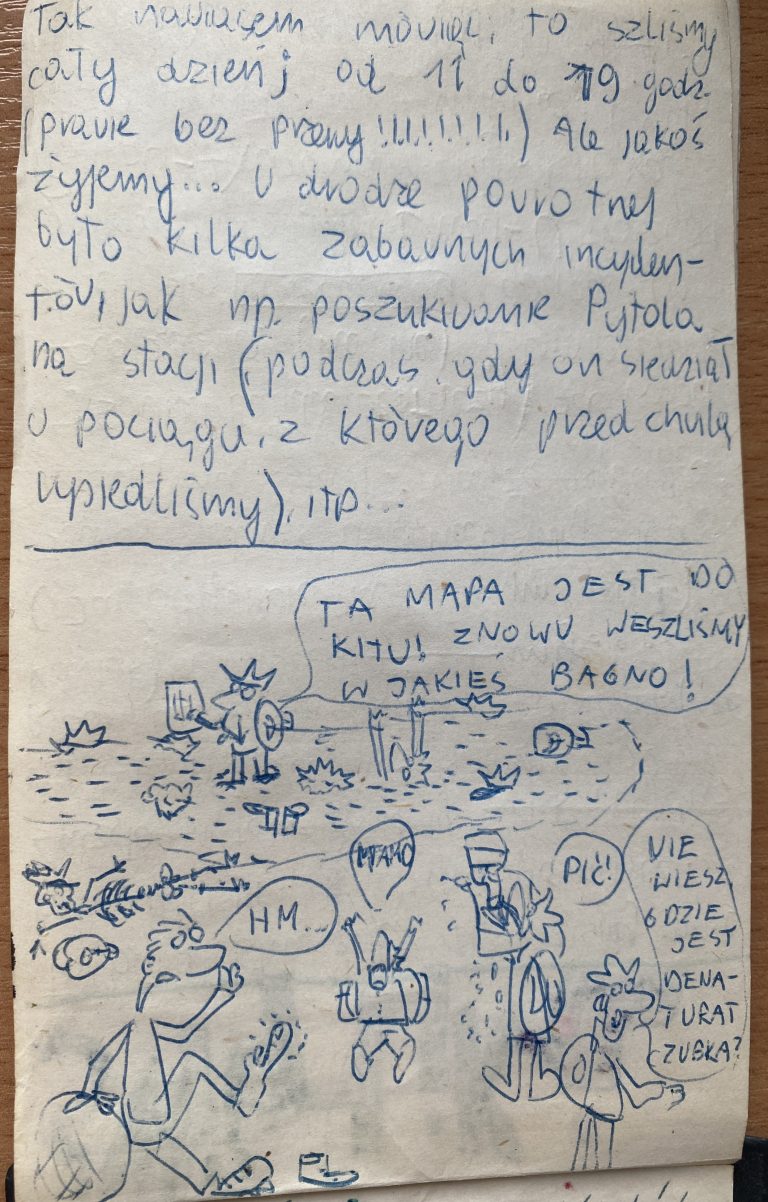 Tak nawiasem mówiąc, to szliśmy
cały dzień, od 11 do 19 godz.
(prawie bez przerwy!!!!!!!!) Ale jakoś
żyjemy... W drodze powrotnej
było kilka zabawnych incyden-
tów, jak np. poszukiwanie Pytola
na stacji (podczas gdy on siedział
w pociągu, z którego przed chwilą
wysiedliśmy), itp...
TA MAPA JEST DO
KITU! ZNOWU WESZLIŚMY
W JAKIEŚ BAGNO!
HM...
PIĆ!
NIE
WIESZ,
GDZIE
JEST
DENA-
TURAT